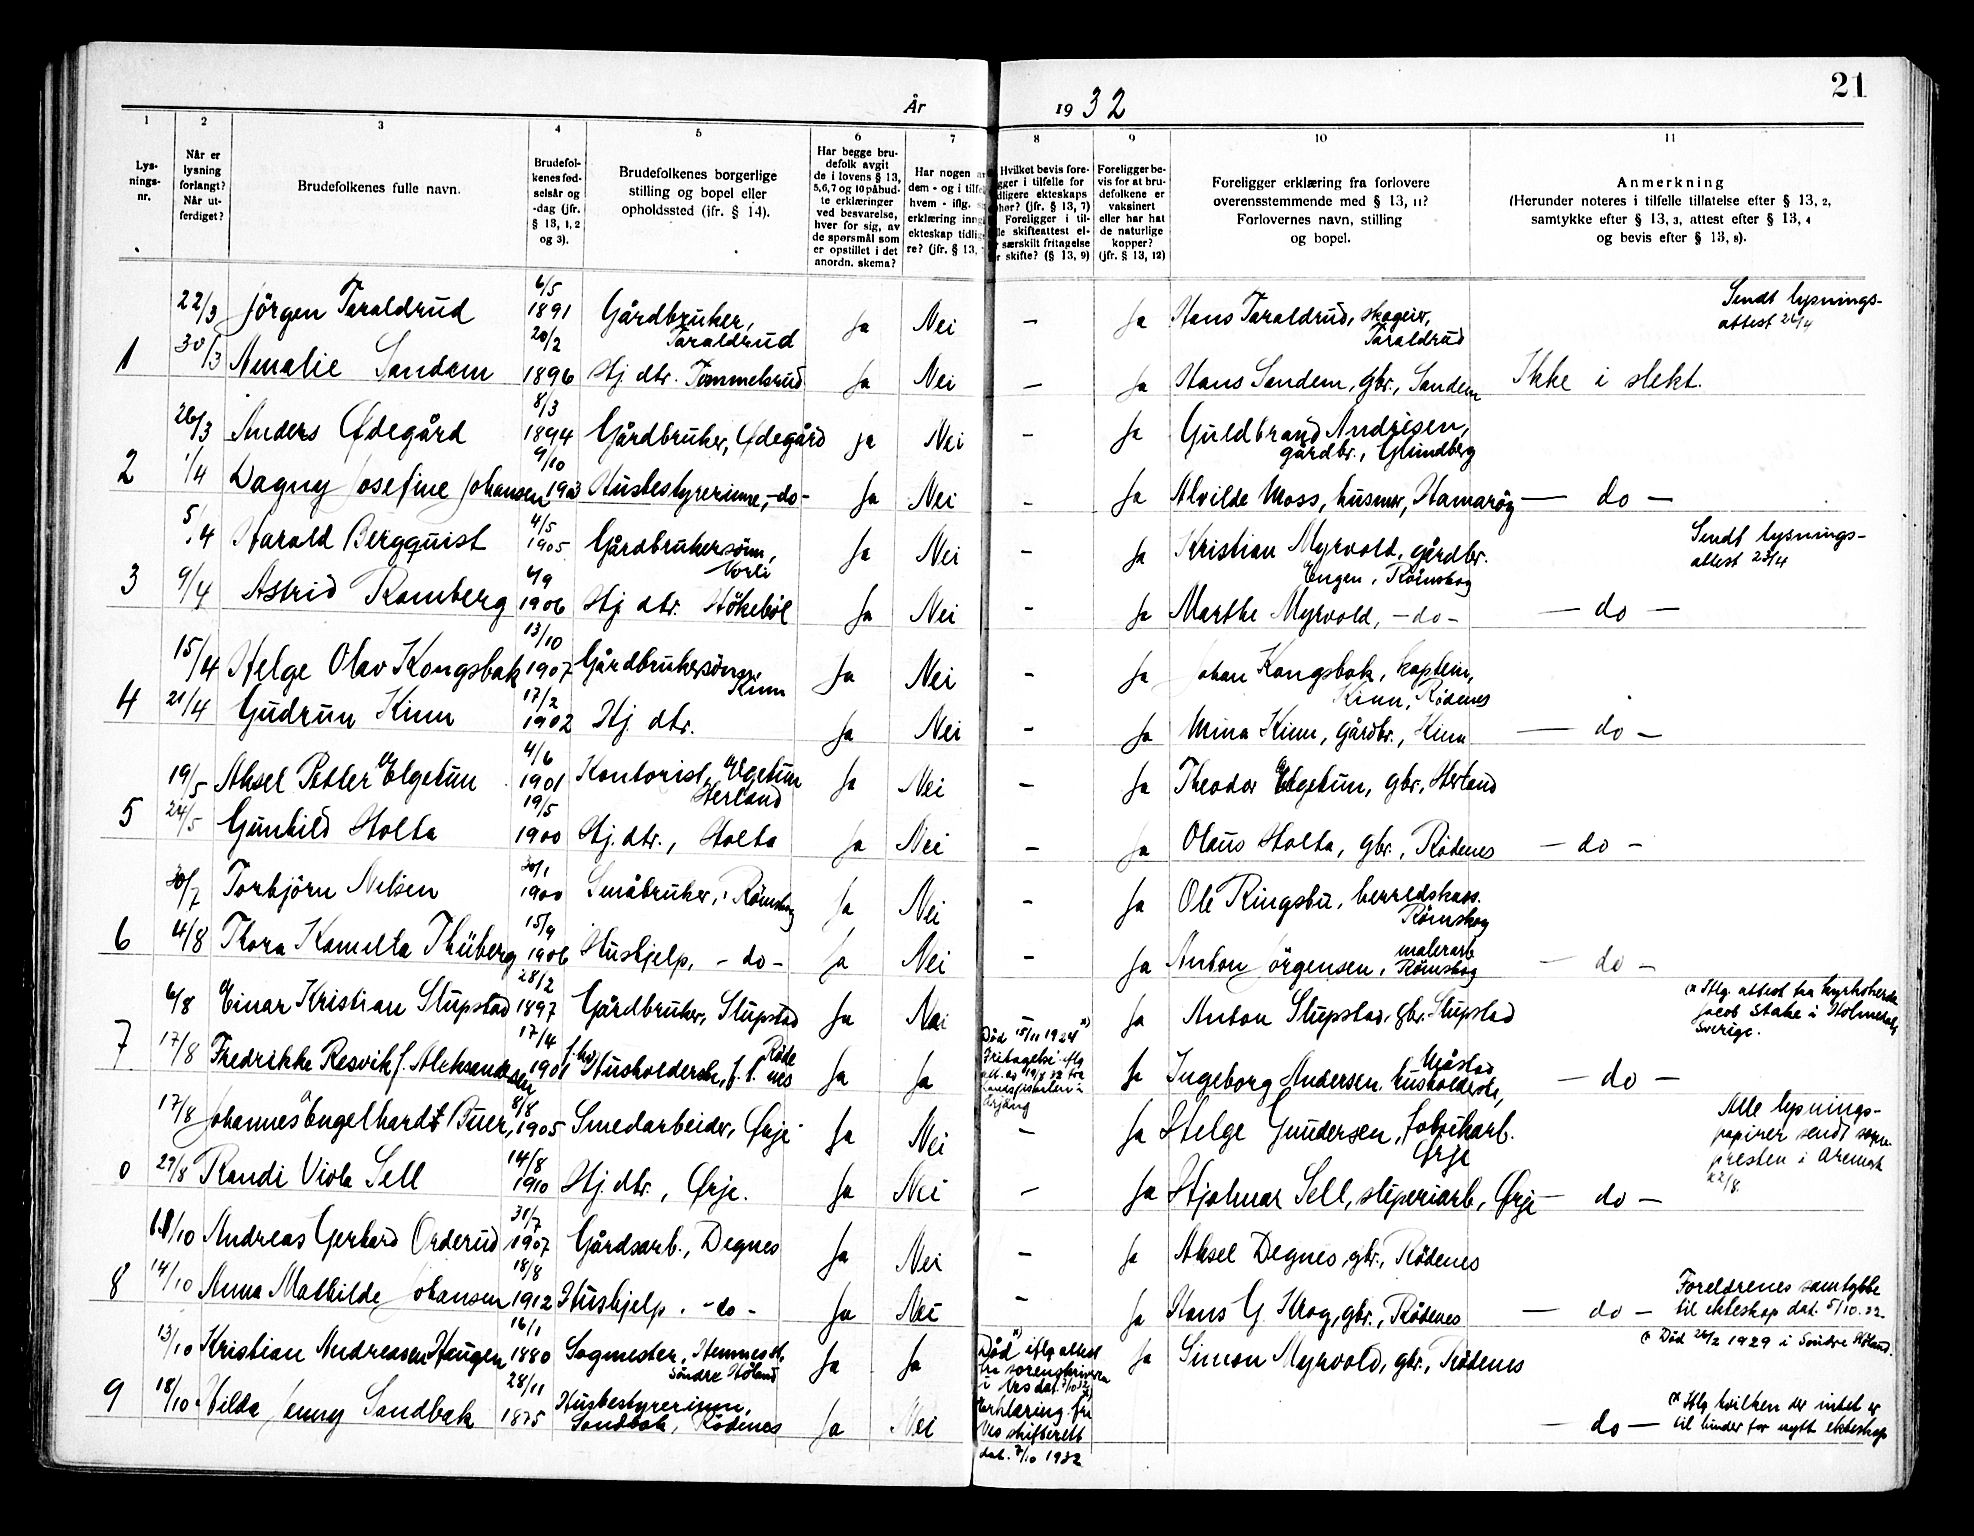 21
År 1932
1 2 3 4 5 6 7 8 9 10 11
Lys-
nings-
nr.
Når er
lysning
forlangt?
Når ut-
ferdiget?
Brudefolkenes fulle navn.
Brudefol-
kenes fød-
selsår og
-dag (jfr.
§ 13, 1, 2
og 3).
Brudefolkenes borgerlige
stilling og bopel eller
opholdssted (ifr. § 14).
Har begge bru-
defolk avgit
de i lovens § 13,
5,6,7 og 10 påbud-
te erklæringer
ved besvarelse,
hver for sig, av
de spørsmål som
er opstillet i det
anordn. skema?
Har nogen
dem - og i tilfel
hvem - iflg.
erklæring inng
ekteskap tidlig
re? (jfr. § 13,
Hvilket bevis fore-
gger i tilfelle for
dligere ekteskaps
phør? (jfr. § 13, 7)
Foreligger i til-
lle skifteattest el-
særskilt fritagelse
r skifte? (§ 13, 9)
Foreligger be-
vis for at bru-
defolkene er
vaksinert
eller har hat
de naturlige
kopper?
(jfr. § 13, 12)
Foreligger erklæring fra forlovere
overensstemmende med § 13, 11?
Forlovernes navn, stilling
og bopel.
Anmerkning
(Herunder noteres i tilfelle tillatelse efter § 13, 2,
samtykke efter § 13, 3, attest efter § 13, 4
og bevis efter § 13, 8).
22/3 Jörgen Taraldrud 6/5 1891 Gårdbruker, Taraldrud Ja Nei — Ja Hans Taraldrud, skogeier, Taraldrud Sendt lysnings-
attest 26/4
1 30/3 Amalie Sandem 20/2 1896 Hj. dtr. Tommelsrud Ja Nei — Ja Hans Sandem, gbr., Sandem Ikke i slekt.
26/3 Anders Ødegård 8/3 1894 Gårdbruker, Ødegård ja Nei — Ja Guldbrand Andresen, gårdbr., Glundberg
2 1/4 Dagny Josefine Johansen 9/10 1903 Husbestyrerinne, -do- Ja Nei — Ja Alvilde Moss, husmor, Hamarøy — do —
5/4 Harald Bergquist 4/5 1905 Gårdbrukersønn, Ja Nei — Ja Kristian Myrvold, gårdbr. Engen, Rømskog Sendt lysnings-
attest 23/4
3 9/4 Astrid Ramberg 1906 Hj. dtr. Hökeböl Ja Nei — Ja Marthe Myrvold, -do- — do —
15/4 Helge Olav Kongsbak 13/10 1907 Gårdbrukersønn, Kinn Ja Nei — Ja Johan Kongsbak, kaptein, Kinn, Rödenes
4 21/4 Gudrun Kinn 17/2 1902 Hj. dtr. Ja Nei — Ja Mina Kinn, gårdbr., Kinn — do —
19/5 Aksel Petter Elgetun 4/6 1901 Kontorist, Elgetun Herland Ja Nei — Ja Theodor Elgetun, gbr., Herland
5 24/5 Gunhild Holta 19/5 1900 Hj. dtr., Holta Ja Nei — Ja Olaus Holta, gbr., Rödenes — do —
30/7 Torbjörn Nilsen 30/1 1900 Småbruker, Römskog Ja Nei — Ja Ole Ringsbu, herredskass. Römskog
6 4/8 Thora Kamilla Thüberg 15/9 1906 Hushjelp, -do- Ja Nei — Ja Anton Jörgensen, malerarb. Römskog — do —
6/8 Einar Kristian Slupstad 28/2 1897 Gårdbruker, Slupstad Ja Nei — Ja Anton Slupstad, gbr. Slupstad × Iflg. attest fra kyrkoherde
Jacob Stake i Holmedal,
Sverige.
7 17/8 Fredrikke Resvik f. Aleksandersen 17/4 1901 Husholderske, Rödenes Ja Ja Död 15/11 1924 ×) Fritagelse iflg. Ja Ingeborg Andersen, husholderske, — do —
17/8 Johannes Engelhardt Buer, 8/8 1905 Smedarbeider, Ørje Ja Nei — Ja Helge Gundersen, fabrikarb. Ørje Alle lysnings-
papirer sendt sogne-
presten i Aremark
22/8.
0 29/8 Randi Viola Sell 14/8 1910 Hj. dtr., Ørje. Ja Nei — Ja Hjalmar Sell, sliperiarb., Ørje — do —
11/10 Andreas Gerhard Orderud 31/7 1907 Gårdsarb., Degnes Ja Nei — Ja Aksel Degnes, gbr., Rödenes
8 14/10 Anna Mathilde Johansen 18/8 1912 Hushjelp. -do- Ja Nei — Ja Hans G. Krog, gbr., Rödenes — do — Foreldrenes samtykke
til ekteskap dat. 5/10.32.
13/10 Kristian Andreasen Haugen 16/1 1880 Sagmester, Hemnes st. Söndre Höland Ja Ja Död ×) iflg. attest fra sorenskriveren i Nes dat. 7/10 32 Ja Simon Myrvold, gbr., Rödenes × Död 26/2 1929 i Söndre Höland.
9 18/10 Hilda Jenny Sandbak 28/11 1875 Husbestyrerinne, Sandbak, Rödenes Ja Nei Erklæring fra Nes skifterett dat. 7/10 1932 — do — × Iflg. hvilken der intet er
til hinder for nytt ekteskap